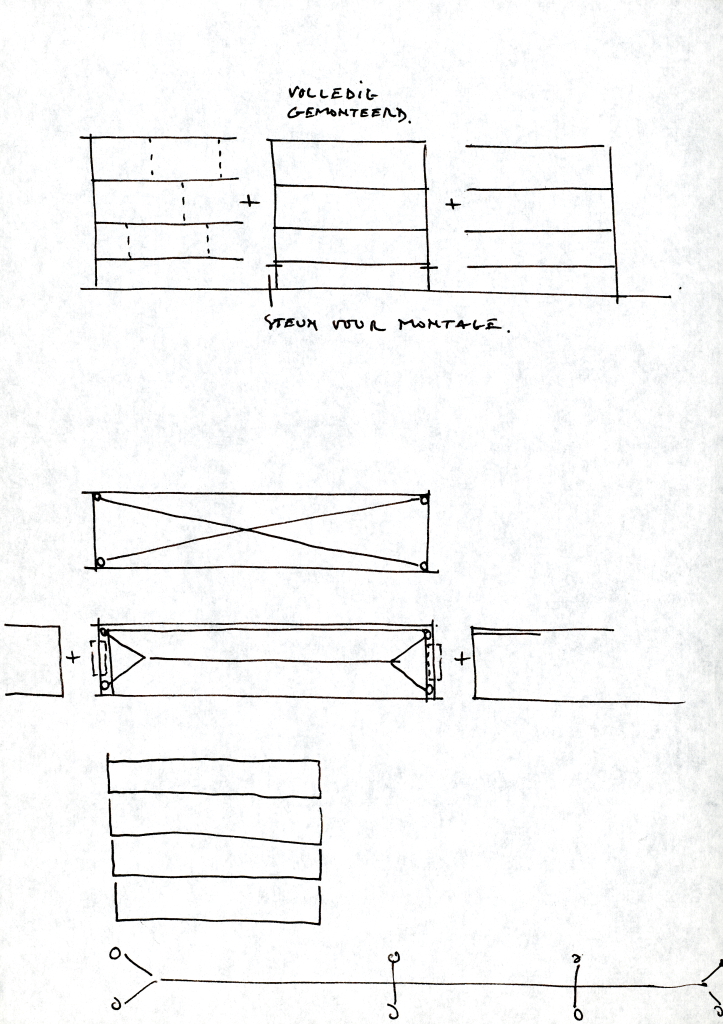 VOLLEDIG
GEMONTEERD.
+ +
STEUN VOOR MONTAGE.
+ +